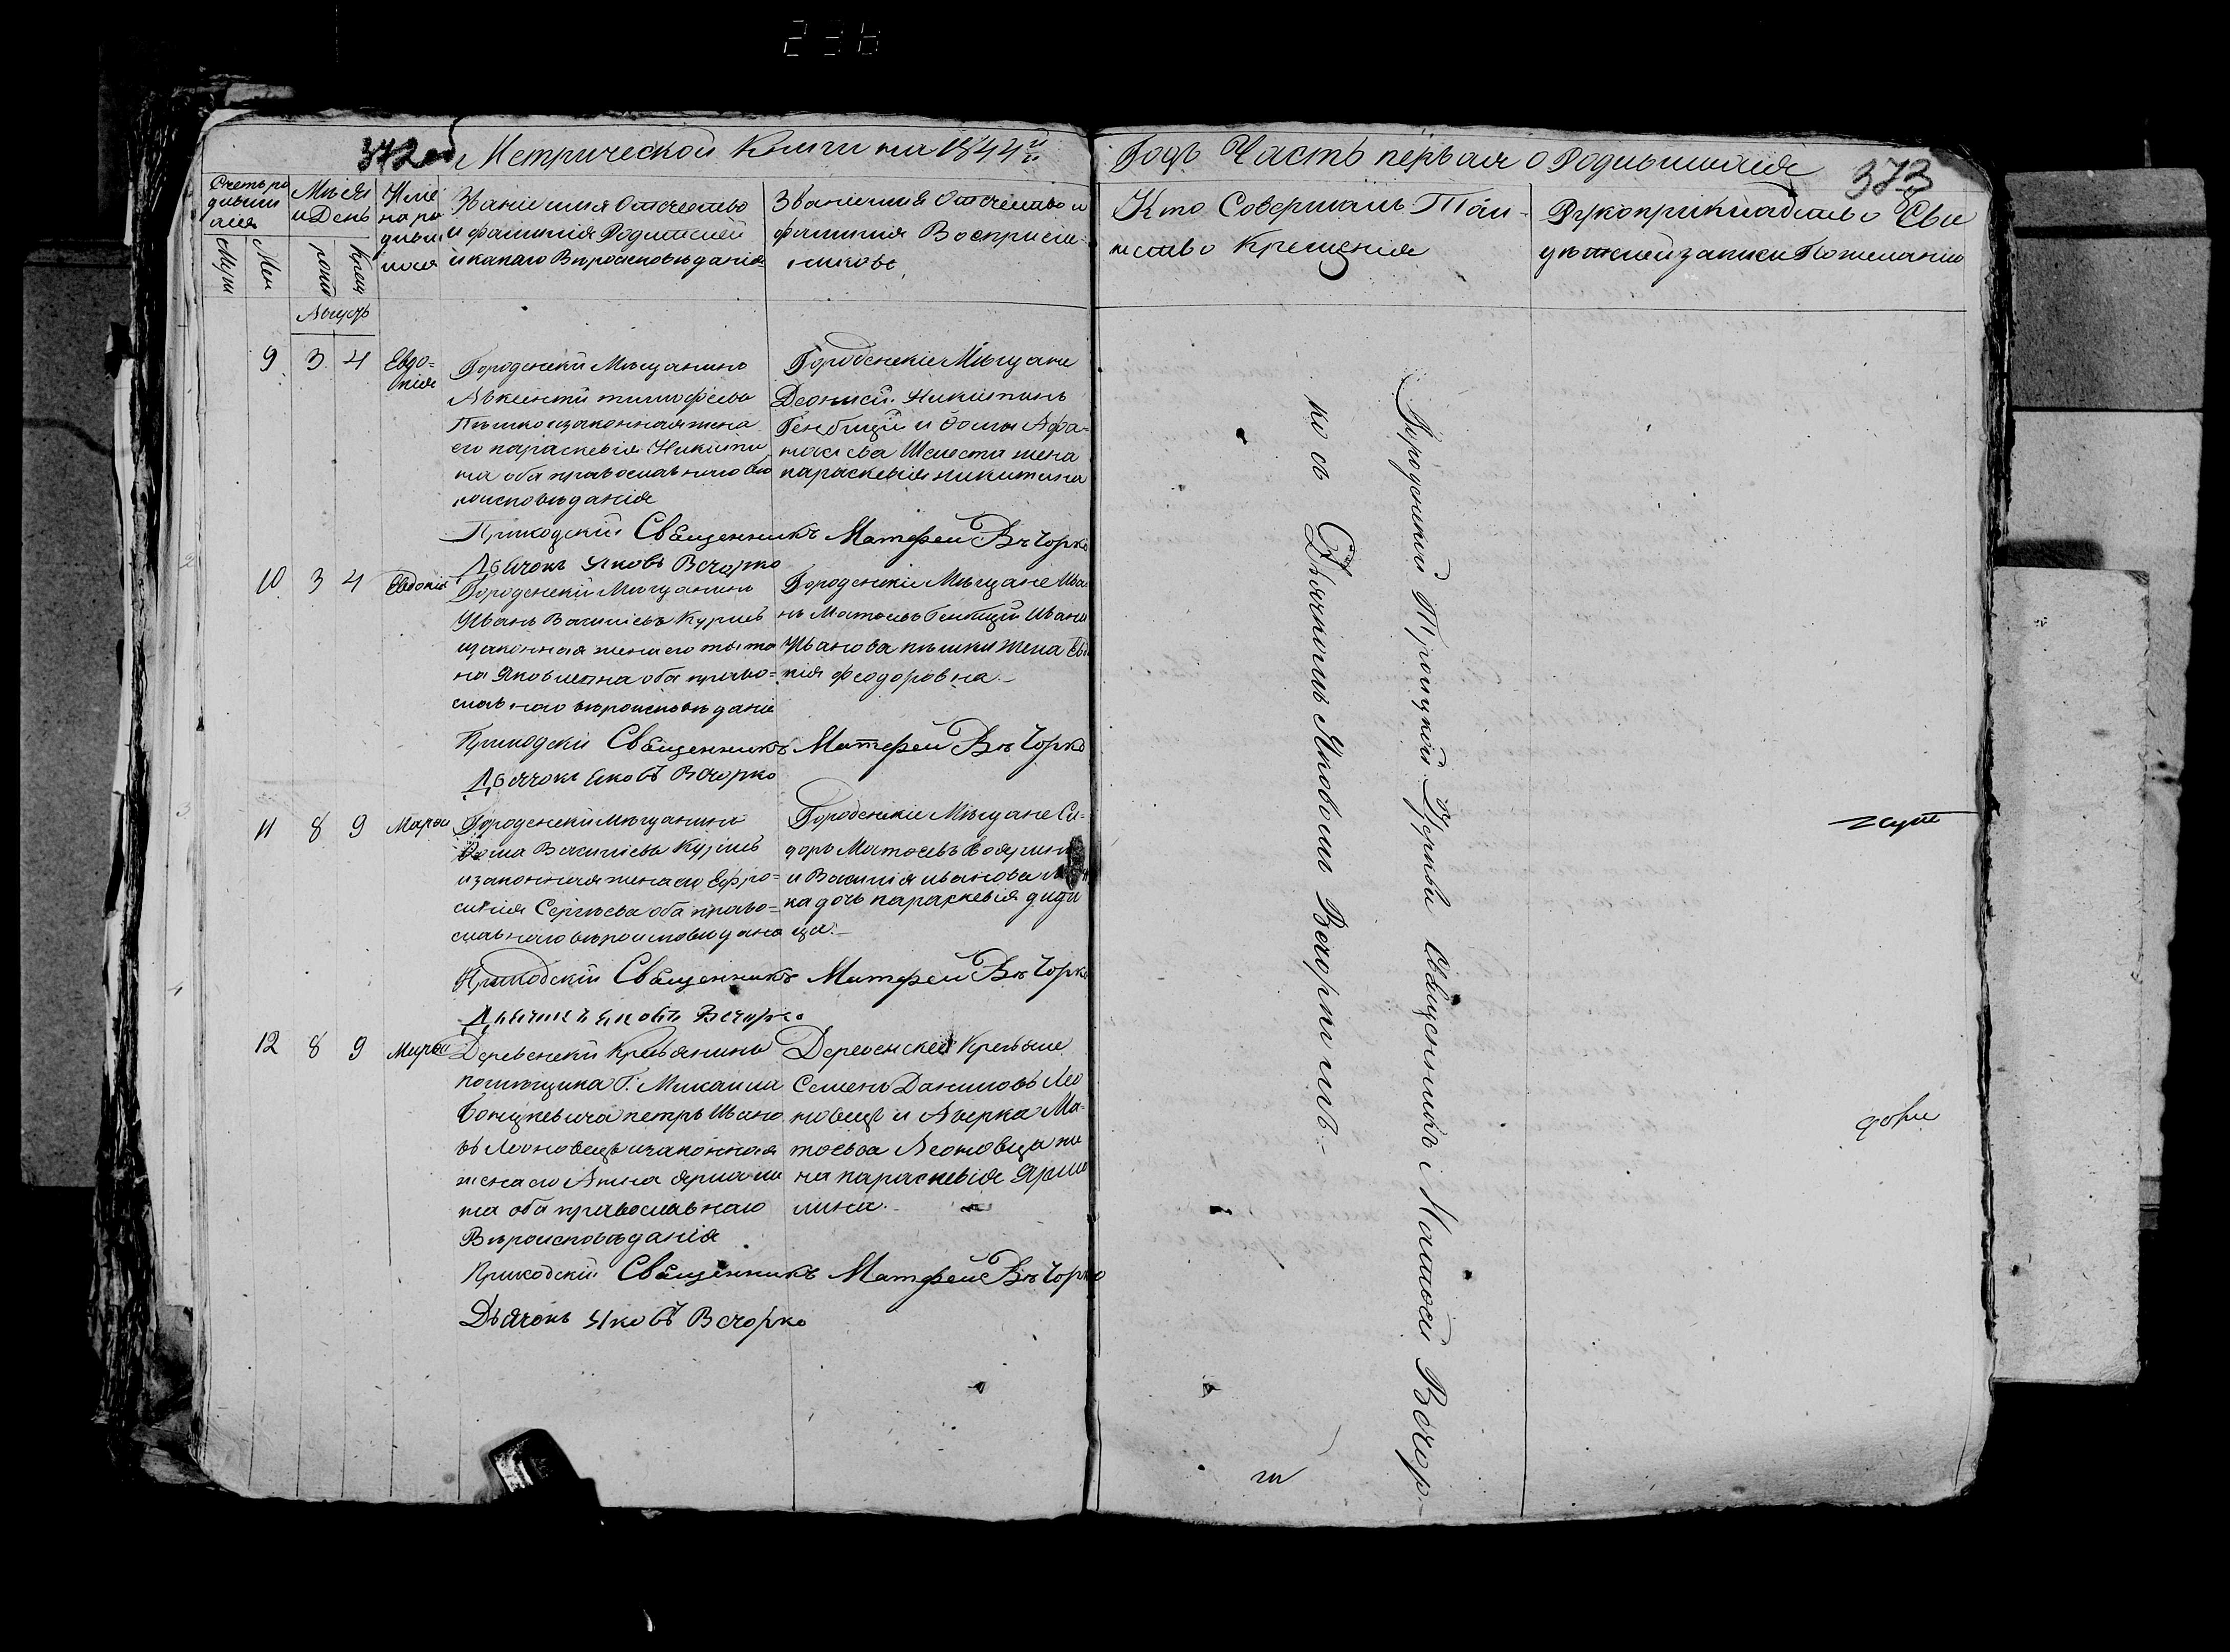 236
372
Метрической Книги на 1844й
Годъ Часть первая о Родившихся
373
Счетъ ро
дивши
хся
Муж
Жен
Месяц
и День
рожд
крещ
Имѣ
на ро
дивши
хся
Званіе имя Отчество
и фамилія Родителей
и какаго Вѣроисповѣданія
Званіе имя Отчество и
фамилія Восприем
никовъ
Кто Совершалъ Таи-
нство Крещенія
Рукоприкладство Сви
дѣтелей записи По желанию
Августъ
9 3 4
Евдо=
кія
Городенскій Мѣщанинъ
Авкентій тимофѣевъ
Пѣшко изаконная жена
его параскевія Никити
на оба православнаго вѣ
роисповѣданія
Городенскіе Мѣщане
Деонисій Никитинъ
Генбицкій и Фомы Афа=
насіева Шелеста жена
параскевія никитина
Приходскій Священникъ Матфей Вѣчорко
Дьячокъ Яковъ Вечорко
10 3 4
Евдокія
Городенскій Мѣщанинъ
Иванъ Василіевъ Курілѣ
изаконная жена его татья
на Яковлевна оба право=
славнаго вѣроисповѣданія
Городенскіе Мѣщане Ива
нъ Матѳеевъ Генбицкій Ивана
Иванова пѣшки жена Евдо
кія феодоровна.
Приходскій Священникъ Матфей Вѣчорко
Дьячокъ Яковъ Вечорко
11 8 9
Мароа
Городенскій мѣщанинъ
Фома Василіевъ Курілѣ
изаконная жена его Ефро=
синія Сергѣева оба право=
славнаго вѣроисповѣдания
Городенскіе Мѣщане Си=
доръ Матѳеевъ
и Василія иванова
ка дочь параскевія деди
ца.
Приходскій Священникъ Матфей Вѣчорко
Дьячокъ Яковъ Вечорко
12 8 9
Мароа
Деревенскій Крестьянинъ
помѣщика Г. Михаила
Богуцкевича петръ Ивано
въ Леоновецъ изаконная
жена его Анна ярмоли
на оба православнаго
Вѣроисповѣданія
Деревенскіе Крестьяне
Семенъ Даниловъ Лео
новецъ и Аверка Ма=
тѳеева Леоновца же
на параскевія Ярмо
лина.
Приходскій Священникъ Матфей Вѣчорко
Дьячокъ Яковъ Вечорко
Городенской Троицкой Церкви Священникъ Матфей Вечор-
ко съ Дьячкомъ Яковомъ Вечоркомъ.